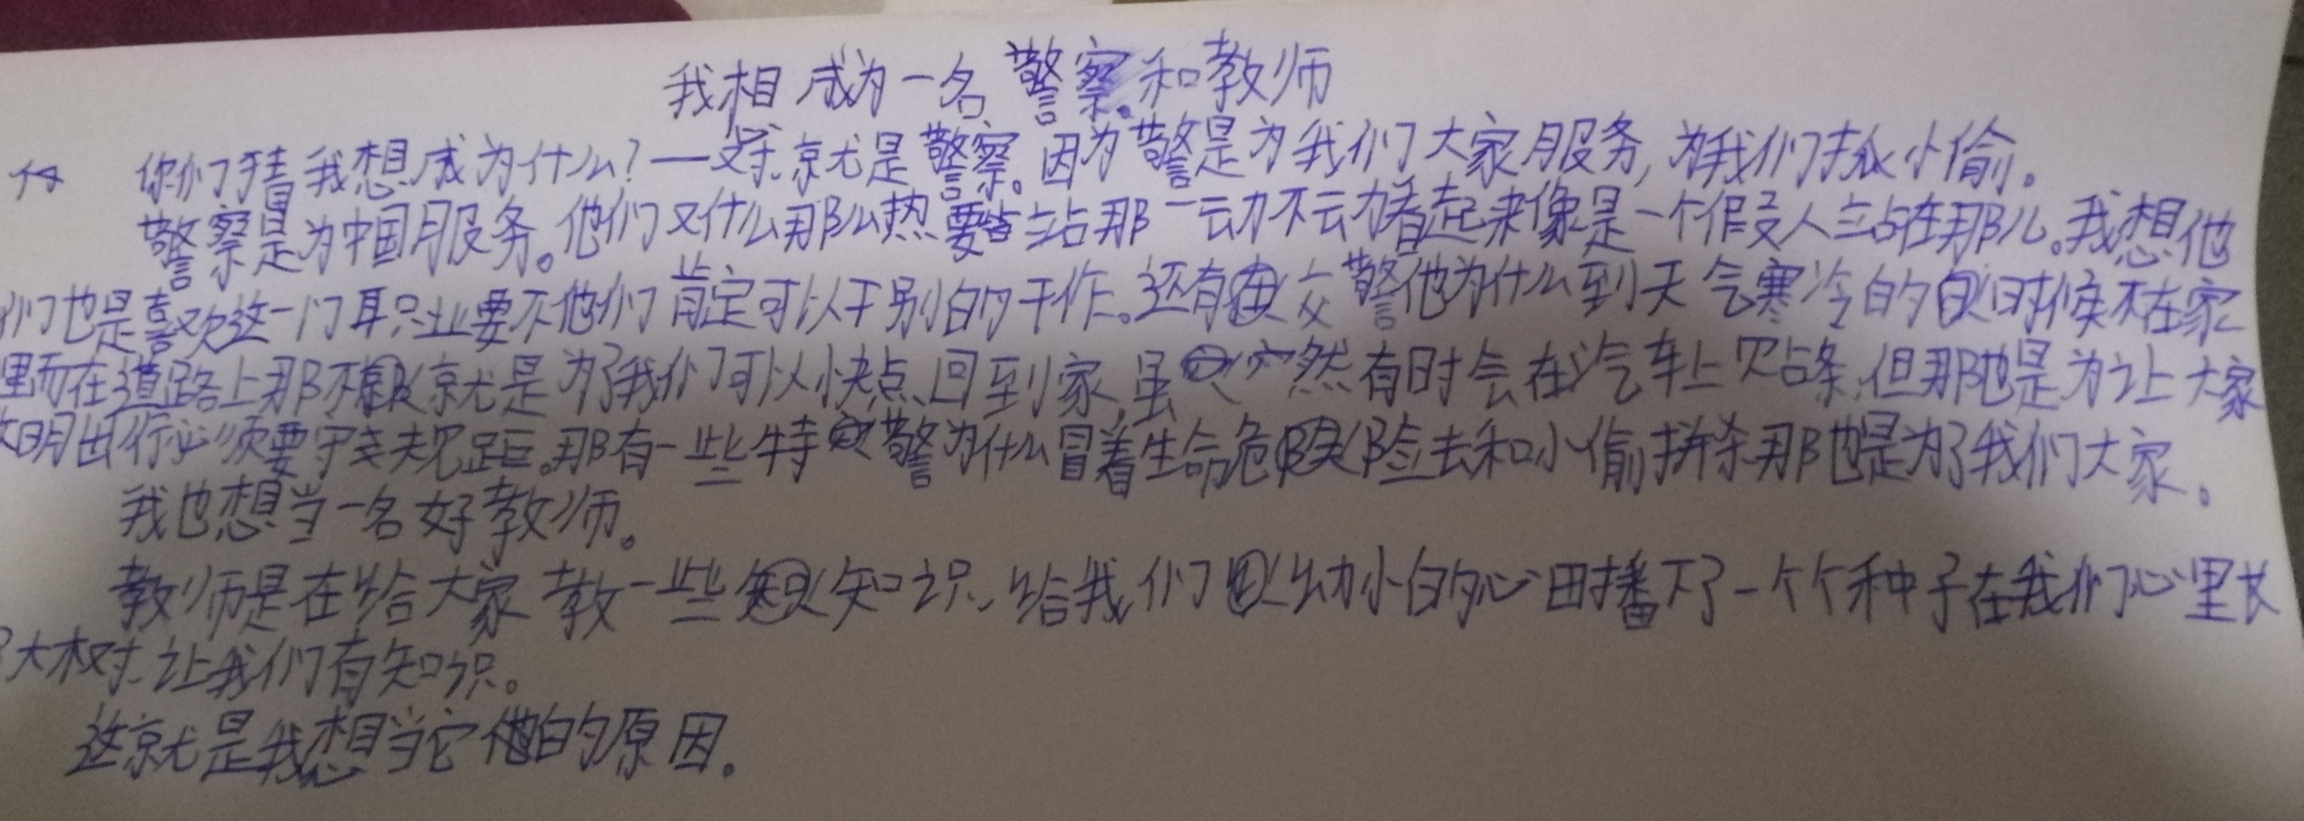 我相成为一名警察和教师
你们猜我想成为什么?一对就是警察。因为警是为我们大家服务,为我们抓小偷。
警察是为中国服务。他们又什么那么热要站那一动不动看起来像是一个假人站在那儿。我想他
们也是喜欢这一门职业要不他们肯定可以干别的干作。还有交警他为什么到天气寒冷的时候不在家
里而在道路上那不就是为了我们可以快点回到家,虽然有时会在汽车上贴条,但那也是为让大家
文明出行必须要守规距。那有一些特警为什么冒着生命危险去和小偷拼杀那也是为了我们大家。
我也想当一名好教师。
教师是在给大家教一些知识、给我们幼小的心田播下了一个个种子在我们心里长
大树让我们有知识。
这就是我想当它的原因。